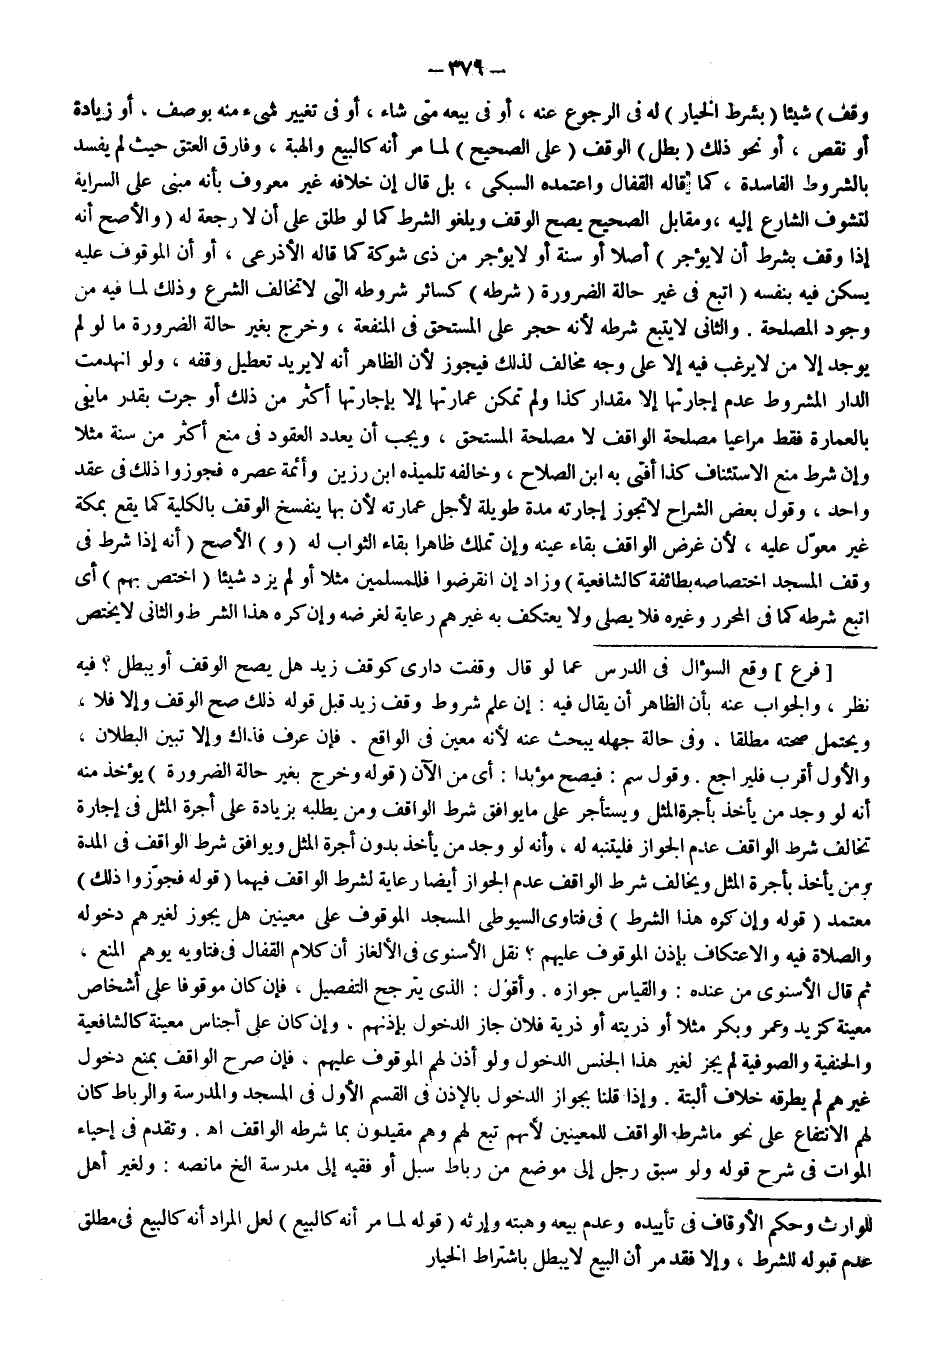 – ٣٧٩ –
وقف ) شيئا ( بشرط الخيار ) له فى الرجوع عنه ، أو فى بيعه متى شاء ، أو فى تغيير شىء منه بوصف ، أو زيادة
أو نقص ، أو نحو ذلك ( بطل ) الوقف ( على الصحيح ) لما مر أنه كالبيع والهبة ، وفارق العتق حيث لم يفسد
بالشروط الفاسدة ، كما قاله القفال واعتمده السبكى ، بل قال إن خلافه غير معروف بأنه مبنى على السراية
لتشوف الشارع إليه ، ومقابل الصحيح يصح الوقف ويلغو الشرط كما لو طلق على أن لا رجعة له ( والأصح أنه
إذا وقف بشرط أن لايؤجر ) أصلا أو سنة أو لايؤجر من ذى شوكة كما قاله الأذرعى ، أو أن الموقوف عليه
يسكن فيه بنفسه ( اتبع فى غير حالة الضرورة ( شرطه ) كسائر شروطه التى لاتخالف الشرع وذلك لما فيه من
وجود المصلحة . والثانى لايتبع شرطه لأنه حجر على المستحق فى المنفعة ، وخرج بغير حالة الضرورة ما لو لم
يوجد إلا من لايرغب فيه إلا على وجه مخالف لذلك فيجوز لأن الظاهر أنه لايريد تعطيل وقفه ، ولو انهدمت
الدار المشروط عدم إجارتها إلا مقدار كذا ولم تمكن عمارتها إلا بإجارتها أكثر من ذلك أو جرت بقدر مايفى
بالعمارة فقط مراعيا مصلحة الواقف لا مصلحة المستحق ، ويجب أن يعدد العقود فى منع أكثر من سنة مثلا
وإن شرط منع الاستئناف كذا أفتى به ابن الصلاح ، وخالفه تلميذه ابن رزين وأئمة عصره فجوزوا ذلك فى عقد
واحد ، وقول بعض الشراح لاتجوز إجارته مدة طويلة لأجل عمارته لأن بها ينفسخ الوقف بالكلية كما يقع بمكة
غير معوّل عليه ، لأن غرض الواقف بقاء عينه وإن تملك ظاهرا بقاء الثواب له ( و ) الأصح ( أنه إذا شرط فى
وقف المسجد اختصاصه بطائفة كالشافعية ) وزاد إن انقرضوا فللمسلمين مثلا أو لم يزد شيئا ( اختص بهم ) أى
اتبع شرطه كما فى المحرر وغيره فلا يصلى ولا يعتكف به غيرهم رعاية لغرضه وإن كره هذا الشرط والثانى لايختص
[ فرع ] وقع السؤال فى الدرس عما لو قال وقفت دارى كوقف زيد هل يصح الوقف أو يبطل ؟ فيه
نظر ، والجواب عنه بأن الظاهر أن يقال فيه : إن علم شروط وقف زيد قبل قوله ذلك صح الوقف وإلا فلا ،
ويحتمل صحته مطلقا . وفى حالة جهله يبحث عنه لأنه معين فى الواقع . فإن عرف فذاك وإلا تبين البطلان ،
والأول أقرب فليراجع . وقول سم : فيصح مؤبدا : أى من الآن ( قوله وخرج بغير حالة الضرورة ) يؤخذ منه
أنه لو وجد من يأخذ بأجرة المثل ويستأجر على مايوافق شرط الواقف ومن يطلبه بزيادة على أجرة المثل فى إجارة
تخالف شرط الواقف عدم الجواز فليتنبه له ، وأنه لو وجد من يأخذ بدون أجرة المثل ويوافق شرط الواقف فى المدة
ومن يأخذ بأجرة المثل ويخالف شرط الواقف عدم الجواز أيضا رعاية لشرط الواقف فيهما ( قوله فجوّزوا ذلك )
معتمد ( قوله وإن كره هذا الشرط ) فى فتاوى السيوطى المسجد الموقوف على معينين هل يجوز لغيرهم دخوله
والصلاة فيه والاعتكاف بإذن الموقوف عليهم ؟ نقل الأسنوى فى الألغاز أن كلام القفال فى فتاويه يوهم المنع ،
ثم قال الأسنوى من عنده : والقياس جوازه . وأقول : الذى يترجح التفصيل ، فإن كان موقوفا على أشخاص
معينة كزيد وعمر وبكر مثلا أو ذريته أو ذرية فلان جاز الدخول بإذنهم . وإن كان على أجناس معينة كالشافعية
والحنفية والصوفية لم يجز لغير هذا الجنس الدخول ولو أذن لهم الموقوف عليهم ، فإن صرح الواقف بمنع دخول
غيرهم لم يطرقه خلاف ألبتة . وإذا قلنا بجواز الدخول بالإذن فى القسم الأول فى المسجد والمدرسة والرباط كان
لهم الانتفاع على نحو ماشرط الواقف للمعينين لأنهم تبع لهم وهم مقيدون بما شرطه الواقف اه . وتقدم فى إحياء
الموات فى شرح قوله ولو سبق رجل إلى موضع من رباط سبل أو فقيه إلى مدرسة الخ مانصه : ولغير أهل
للوارث وحكم الأوقاف فى تأبيده وعدم بيعه وهبته وإرثه ( قوله لما مر أنه كالبيع ) لعل المراد أنه كالبيع فى مطلق
عدم قبوله للشرط ، وإلا فقد مر أن البيع لايبطل باشتراط الخيار